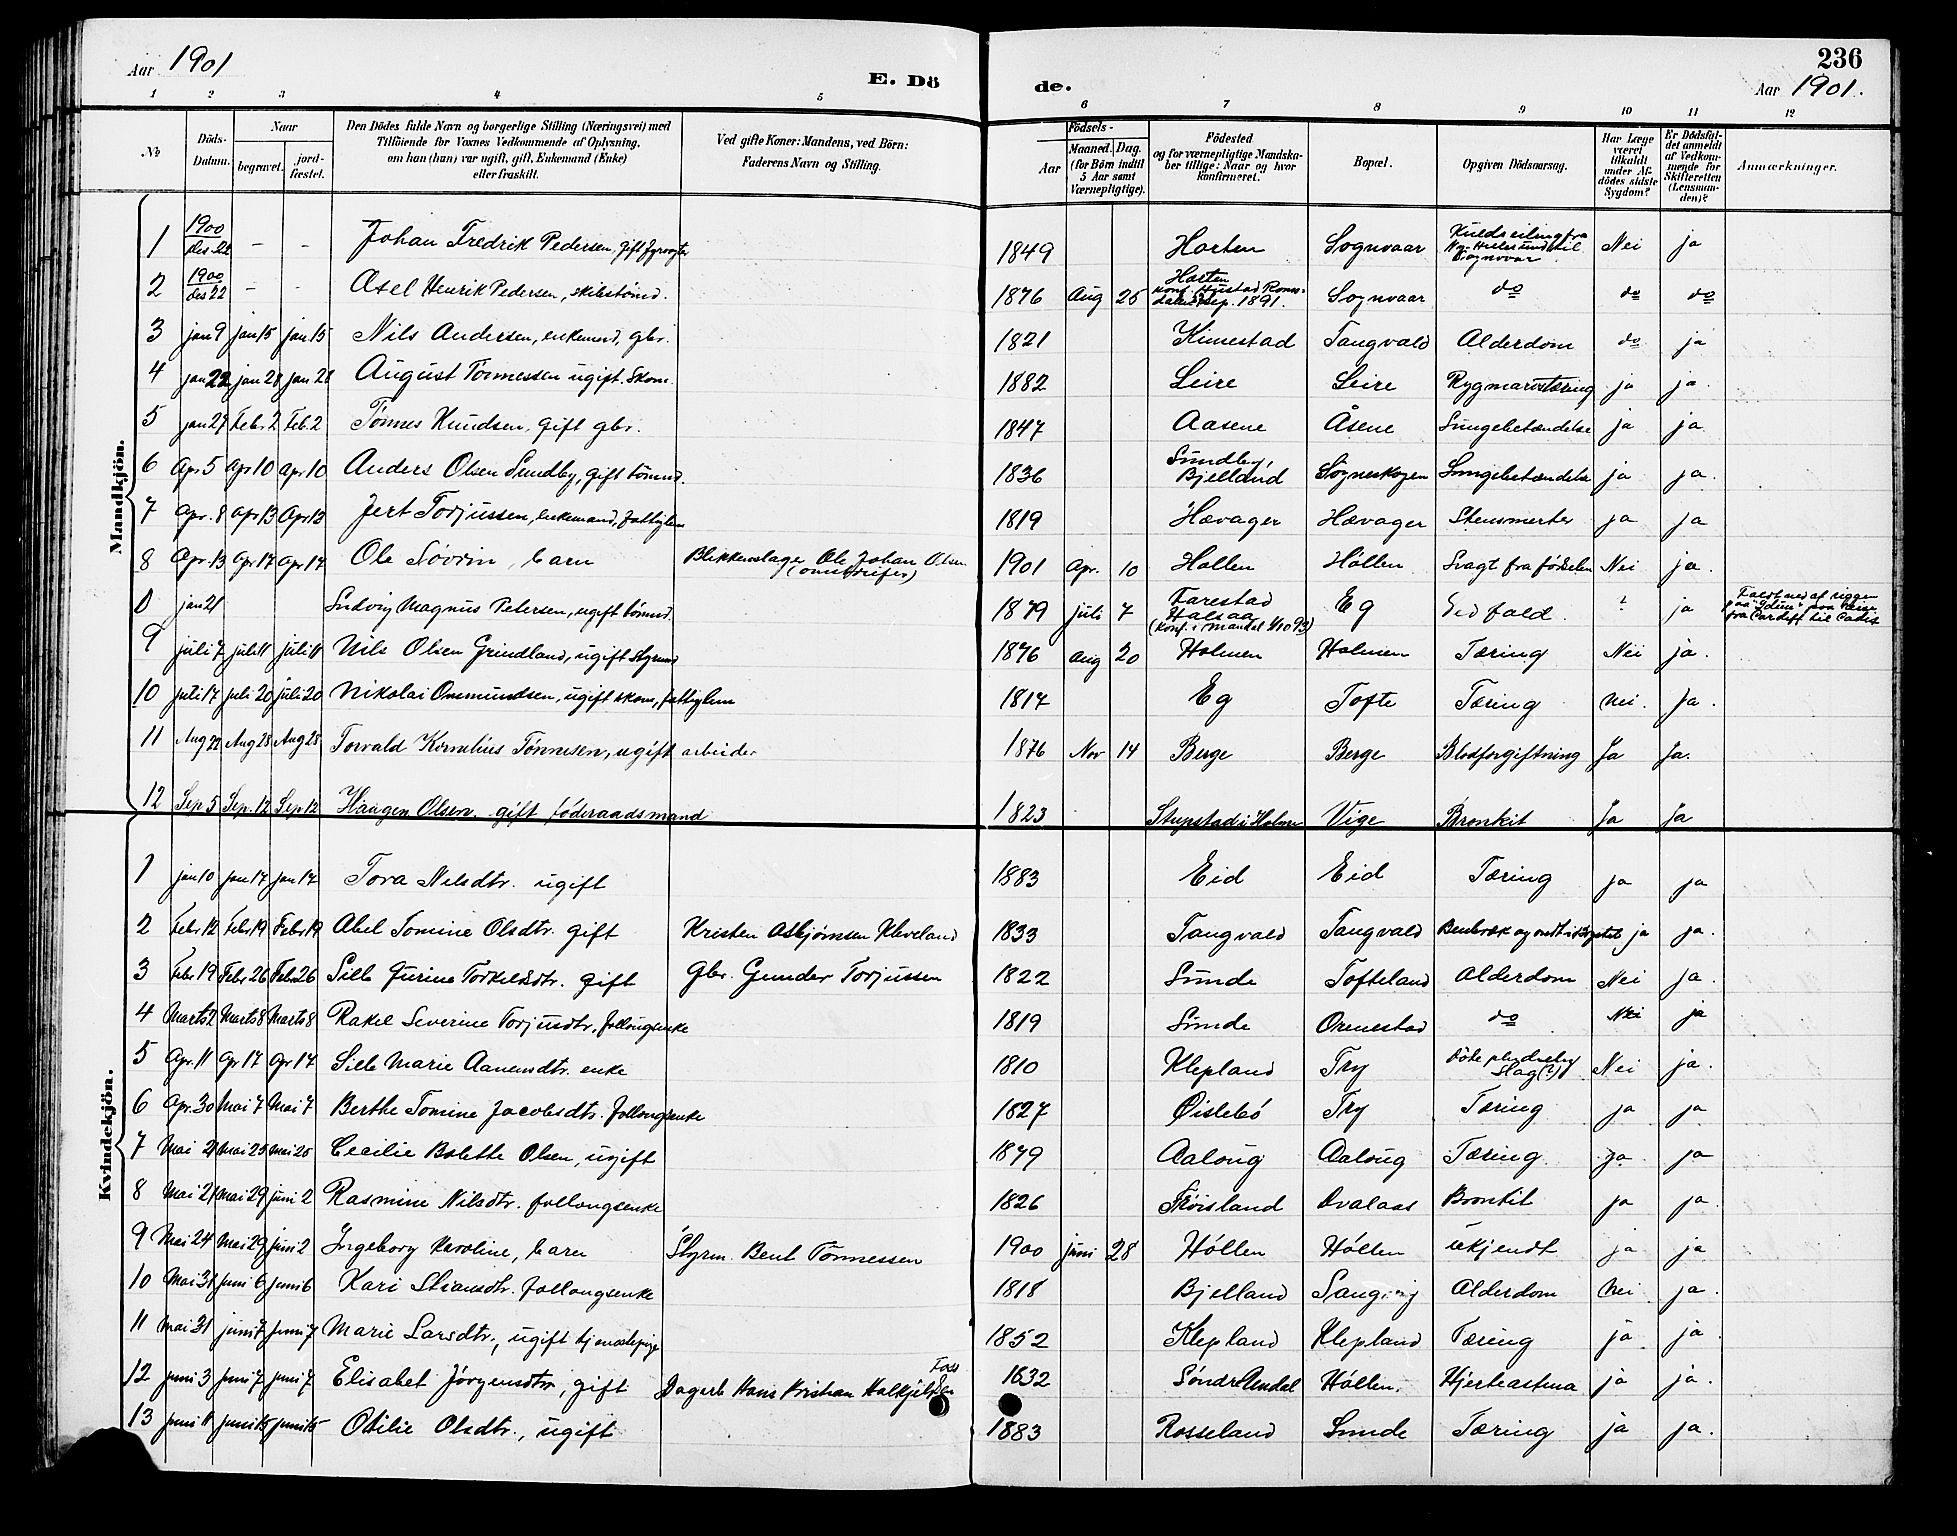 Aar 1901 E. Dö
de. 236
Aar 1901.
1 2 3 4 5 6 7 8 9 10 11 12
No
Döds-Datum.
Naar
begravet.
jord-fæstet.
Den Dödes fulde Navn og borgerlige Stilling (Næringsvei) med
Tilföiende for Voxnes Vedkommende af Oplysning,
om han (hun) var ugift, gift, Enkemand (Enke)
eller fraskilt.
Ved gifte Koner: Mandens, ved Börn:
Faderens Navn og Stilling.
Födsels-
Aar
Maaned. Dag.
(for Börn indtil
5 Aar samt
Værnepligtige).
Födested
og for værnepligtige Mandska-
ber tillige: Naar og hvor
konfirmeret.
Bopæl.
Opgiven Dödsaarsag.
Har Læge
været
tilkaldt
under Af-
dödes sidste
Sygdom?
Er Dödsfal-
det anmeldt
af Vedkom-
mende for
Skifteretten
(Lensman-
den)?
Anmærkninger.
Mandkjön.
1 1900 des 22 - - Johan Fredrik Pedersen, gift fyrvogter 1849 Harten Sognvaar Kuldseiling fra Ny-Hellesund til Sognvaar Nei ja
2 1900 des 22 - - Axel Henrik Pedersen, skibstømd. 1876 Aug 25 Harten konf. Hustad Romsdalen Sep. 1891. Sognvaar do do do
3 jan 9 jan 15 jan 15 Nils Andersen, enkemand, gbr. 1821 Kimestad Tangvald Alderdom do ja
4 jan 22 jan 28 jan 28 August Tønnessen ugift. Skom. 1882 Leire Leire Rygmarvstæring ja ja
5 jan 27 Febr. 2 Feb. 2 Tønnes Knudsen, gift gbr. 1847 Aasene Åsene Lungebetændelse ja ja
6 Apr 5 Apr 10 Apr 10 Anders Olsen Sundby, gift tømmd. 1836 Sundby, Bjelland Sögneskogen Lungebetændelse ja ja.
7 Apr. 8 Apr 13 Apr 13 Jert Torjussen, enkemand, fattiglem 1819 Hævager Hævager Stensmerter ja ja
8 Apr 13 Apr 17 Apr 17 Ole Søvrin, barn Blikkenslager Ole Johan Olsen (omstreifer) 1901 Apr. 10 Hollen Höllen Svagt fra födselen Nei ja.
0 jan 21 Ludvig Magnus Petersen, ugift tømmd. 1879 juli 7 Farestad Halsaa (konf. i Mandal 1893) Eg Ved fald. ? ja Faldt ned af riggen paa "Idun" paa reise fra Cardiff til Cadix
9 juli 7 juli 11 juli 11 Nils Olsen Grindland, ugift styrmd 1876 Aug 20 Holmen Holmen Tæring Nei ja.
10 juli 17 juli 20 juli 20 Nikolai Omundsen, ugift skom, fattiglem 1817 Eg Tofte Tæring Nei. Ja.
11 Aug 22 Aug 28 Aug 28 Torvald Kornelius Tønnesen, ugift arbeider 1876 Nov 14 Berge Berge Blodforgiftning Ja Ja.
12 Sep 5 Sep. 12 Sep 12 Haagen Olsen gift föderaadsmand 1823 Stupstad i Holme Vige Bronkit Ja Ja
Kvindekjön.
1 jan 10 jan 17 jan 17 Tora Nilsdtr. ugift 1883 Eid Eid Tæring ja ja
2 Febr 12 Febr 19 Febr 19 Abel Tomine Olsdtr. gift Kristen Asbjørnsen Kleveland 1833 Tangvald Tangvald Benbræk og ondt i brystet ja ja.
3 Febr 19 Febr 26 Febr 26 Sille Gurine Torkelsdtr. gift Gbr. Gunder Torjussen 1822 Sunde Tofteland Alderdom Nei ja.
4 Marts 2 Marts 8 Marts 8 Rakel Severine Torjusdtr, follougsenke 1819 Sunde Orenestad do Nei ja
5 Apr. 11 Apr 17 Apr 17 Sille Marie Aanensdtr. enke 1810 Klepland Try Döde pludselig Slag (?) Nei ja.
6 Apr. 30 Mai 7 Mai 7 Berthe Tomine Jacobsdtr. follougsenke 1827 Øislebö Try Tæring ja ja
7 Mai 21 mai 25 mai 25 Cecilie Bolette Olsen, ugift 1879 Aaloug Aaloug Tæring. ja ja
8 Mai 21 mai 29 juni 2 Rasmine Nilsdtr. follougsenke 1826 Frøisland Ovalaas Bronkit ja ja.
9 Mai 24 Mai 29 juni 2 Ingeborg Karoline, barn Styrm. Bent Tönnessen 1900 juni 28 Höllen Höllen ukjendt ja ja
10 Mai 31 juni 6 juni 6 Kari Stiansdtr. follougsenke 1818 Bjelland Alderdom Nei ja.
11 mai 31 juni 7 juni 7 Marie Larsdtr, ugift tjenestepige 1852 Klepland Klepland Tæring ja ja.
12 juni 3 juni 7 juni 7 Elisabet Jørgensdtr, gift Dagarb Hans Kristian Halkjelsen Foss 1832 Söndre Undal Höllen. Hjerteastma ja ja.
13 juni 11 juni 15 juni 15 Otilie Olsdtr., ugift 1883 Rosseland Sunde Tæring ja ja.